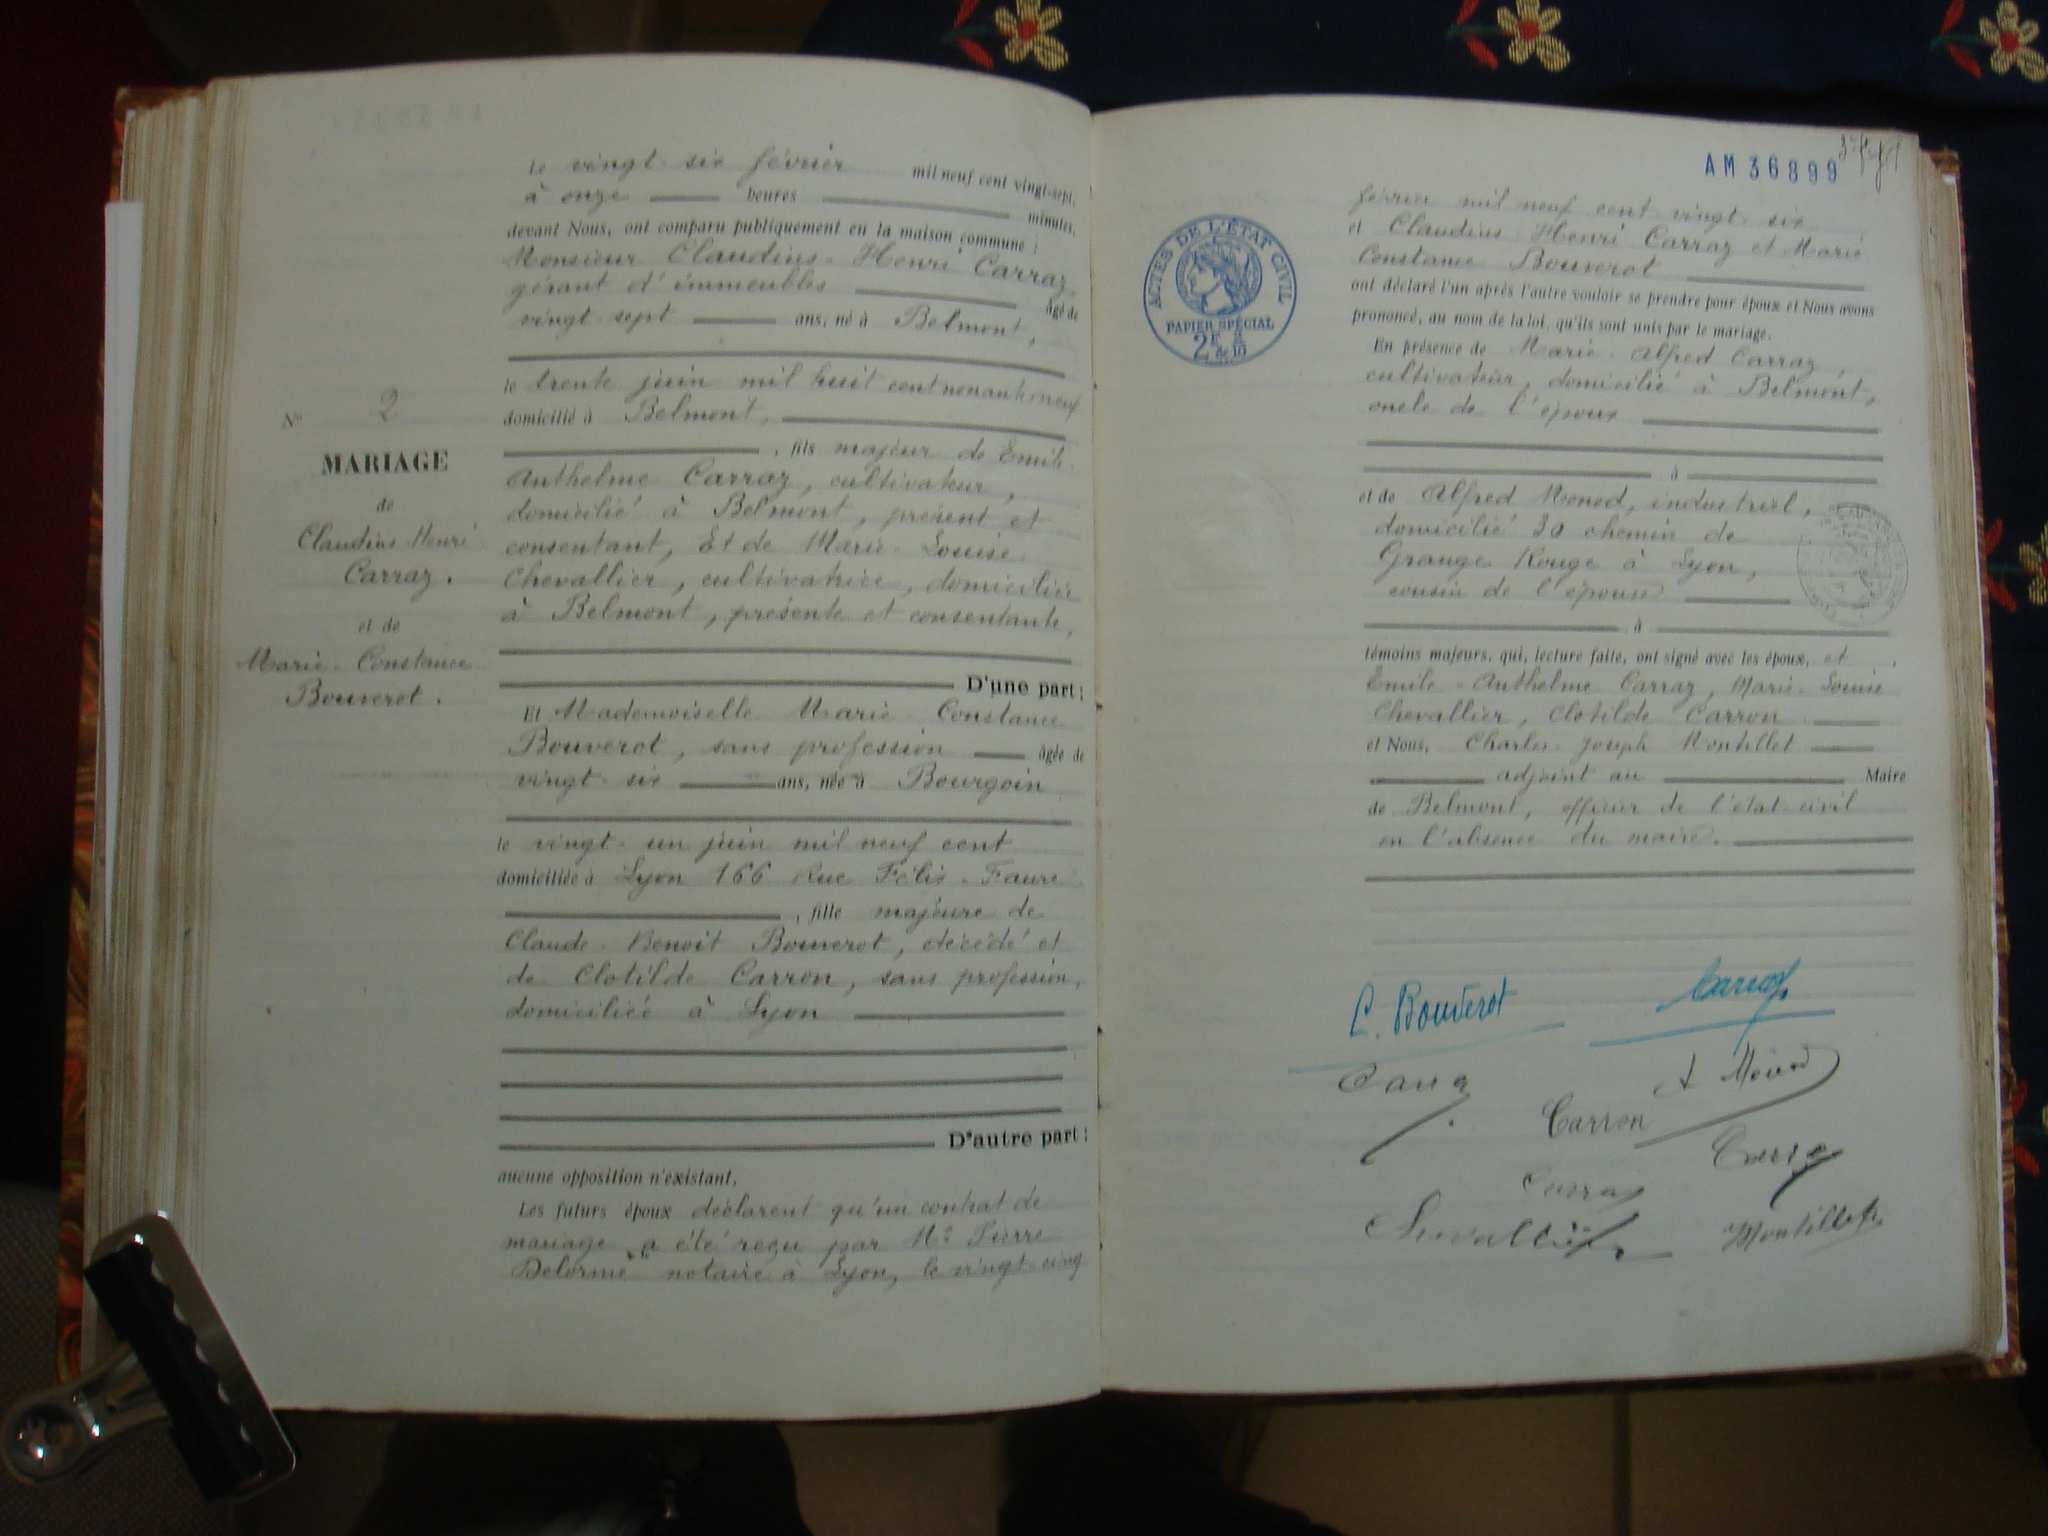 le vingt six février mil neuf cent vingt-sept,
à onze heures minutes,
devant Nous, ont comparu publiquement en la maison commune :
Monsieur Claudius-Henri Carraz,
gérant d'immeubles âgé de
vingt sept ans, né à Belmont,
le trente juin mil huit cent nonante neuf
domicilié à Belmont,
, fils majeur de Emile-
Anthelme Carraz, cultivateur,
domicilié à Belmont, présent et
consentant, Et de Marie-Louise
Chevallier, cultivatrice, domiciliée
à Belmont, présente et consentante,
D'une part ;
Et Mademoiselle Marie-Constance
Bouverot, sans profession âgée de
vingt six ans, née à Bourgoin
le vingt-un juin mil neuf cent
domiciliée à Lyon 166 Rue Félix-Faure
, fille majeure de
Claude-Benoit Bouverot, décédé et
de Clotilde Carron, sans profession,
domiciliée à Lyon
D'autre part ;
aucune opposition n'existant,
Les futurs époux déclarent qu'un contrat de
mariage a été reçu par Me Pierre
Delorme notaire à Lyon, le vingt cinq
No 2
MARIAGE
de
Claudius Henri
Carraz.
et de
Marie-Constance
Bouverot.
AM 36899
ACTES DE L'ÉTAT CIVIL
PAPIER SPÉCIAL
février mil neuf cent vingt six
et Claudius Henri Carraz et Marie
Constance Bouverot
ont déclaré l'un après l'autre vouloir se prendre pour époux et Nous avons
prononcé, au nom de la loi, qu'ils sont unis par le mariage.
En présence de Marie-Alfred Carraz,
cultivateur, domicilié à Belmont,
oncle de l'époux
à
et de Alfred Monod, industriel,
domicilié 30 chemin de
Grange Rouge à Lyon,
cousin de l'épouse
à
témoins majeurs, qui, lecture faite, ont signé avec les époux, et
Emile-Anthelme Carraz, Marie-Louise
Chevallier, Clotilde Carron
et Nous, Charles-Joseph Montillet
adjoint au Maire
de Belmont, officier de l'état-civil
en l'absence du maire.
C. Bouverot
Carraz
Carraz
A Monod
Carron
Carraz
Carraz
Chevallier
Montillet